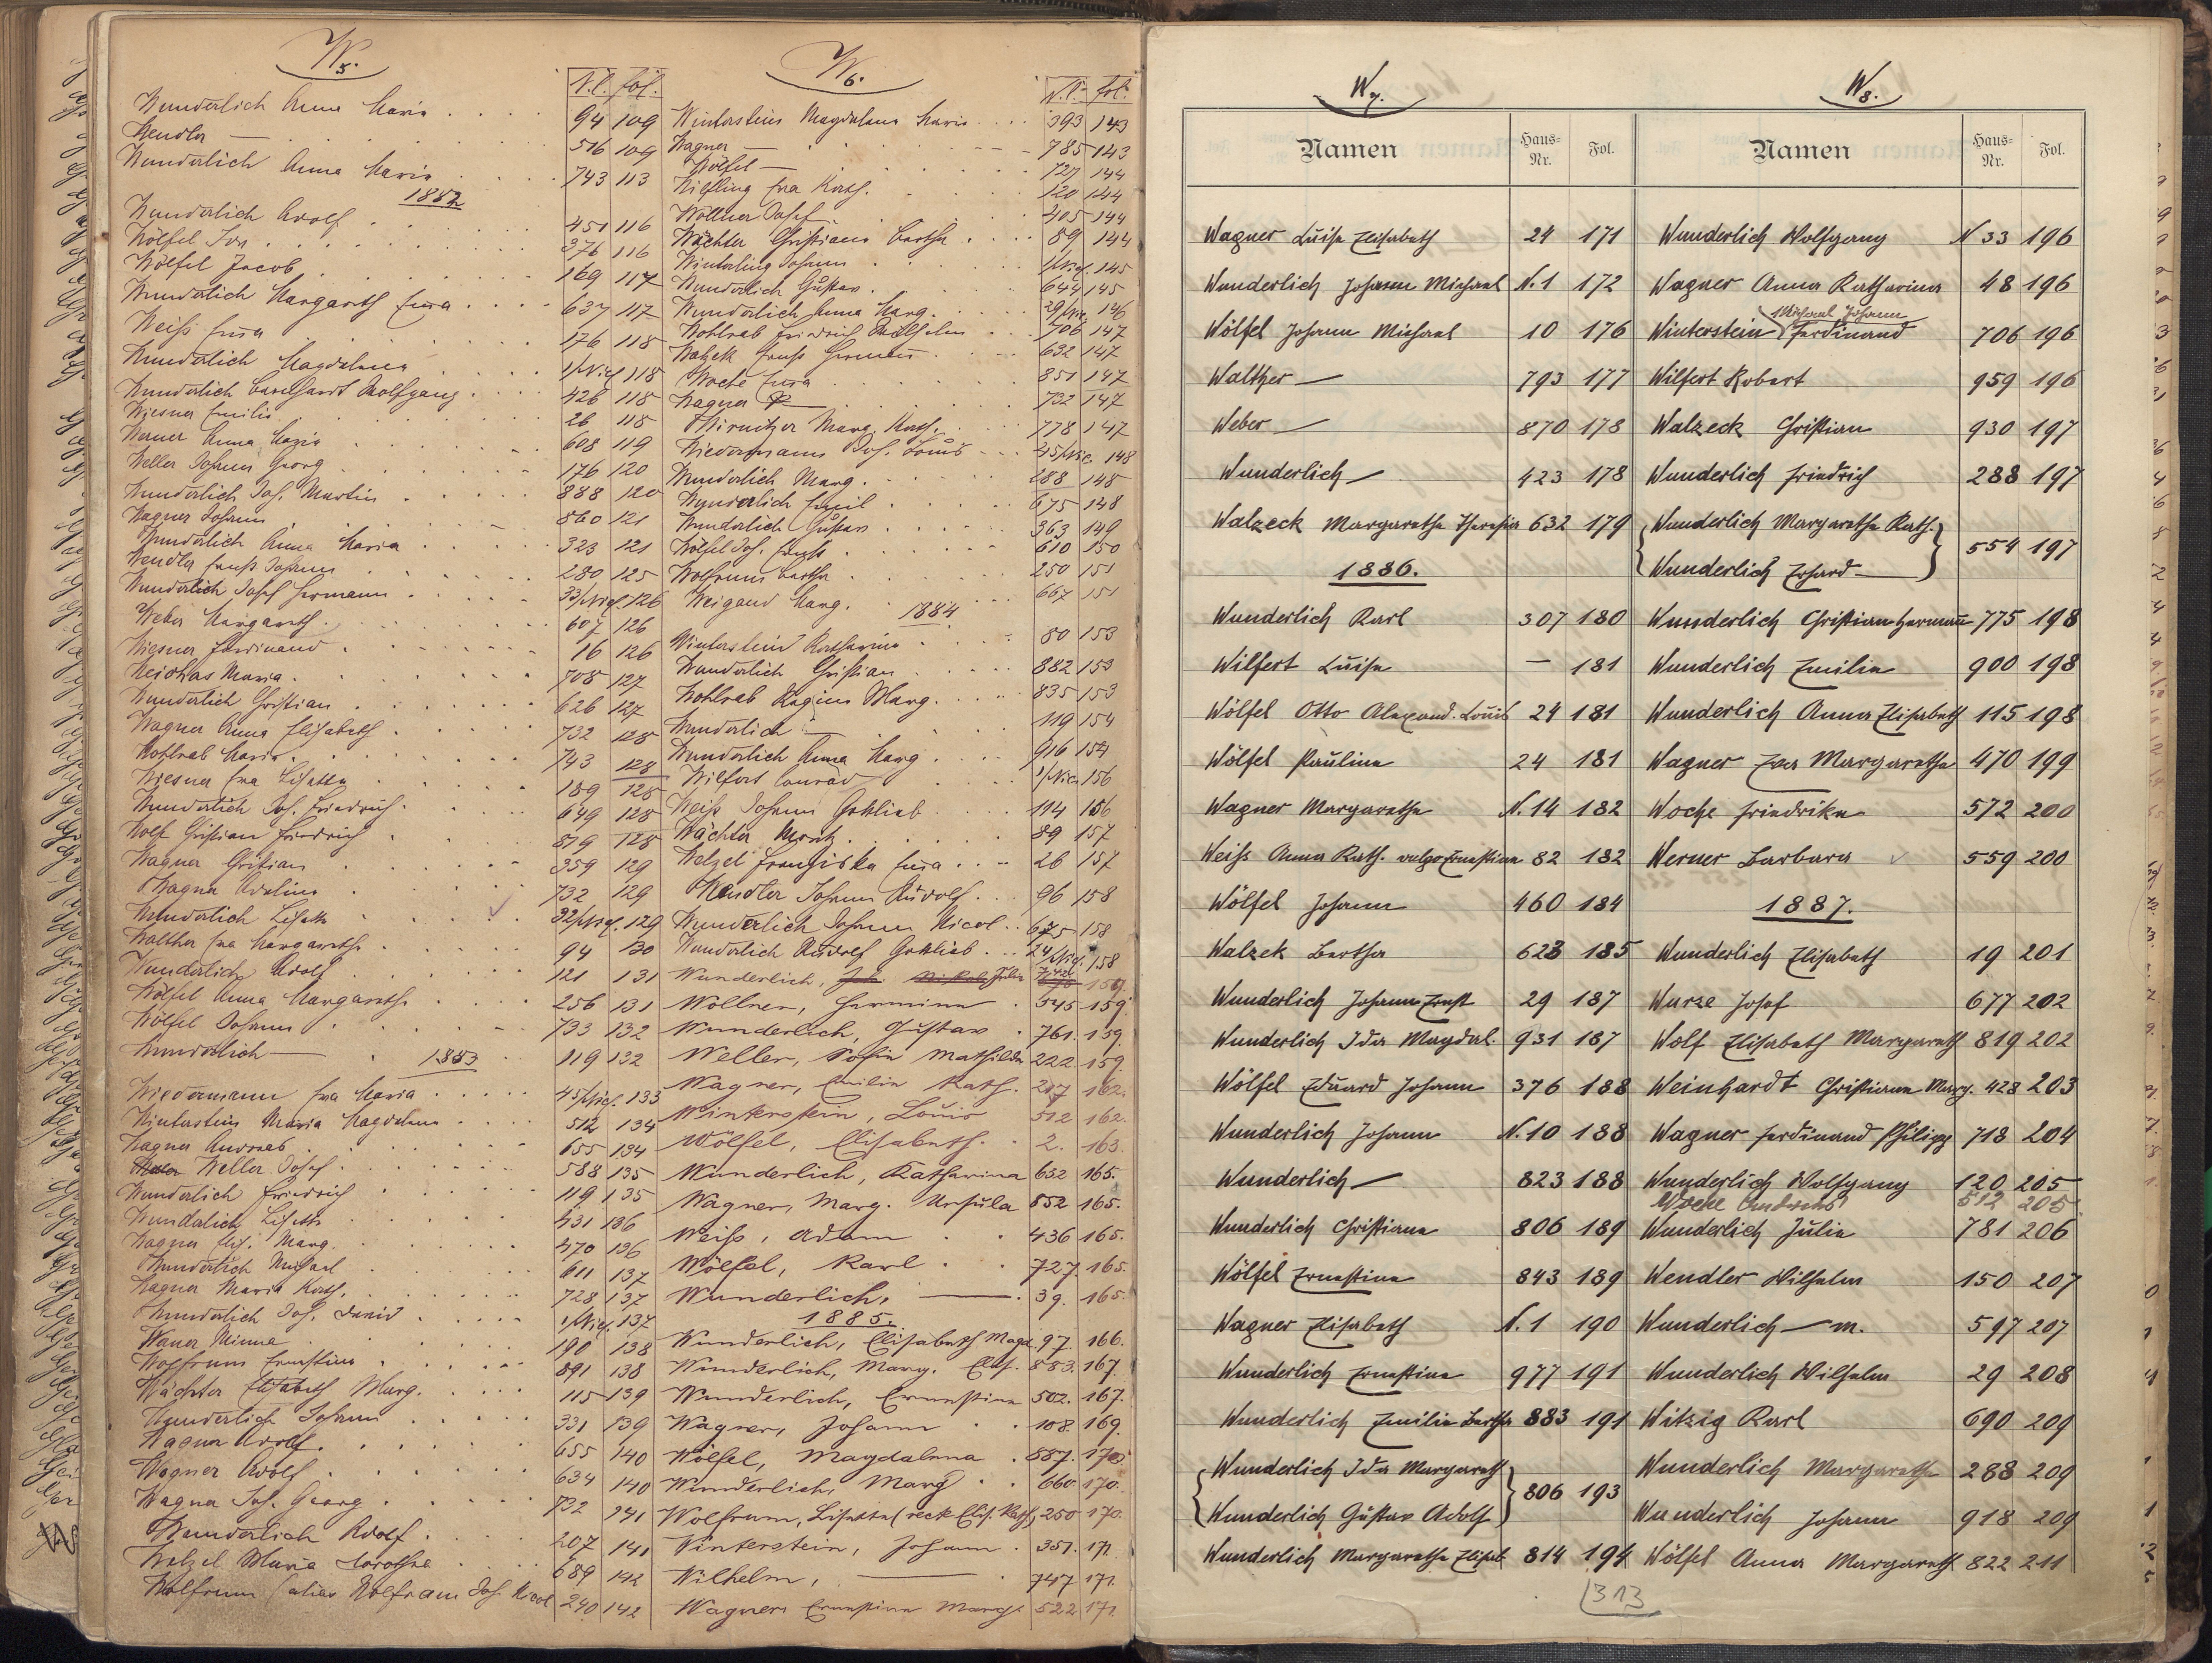 W 5.
N. C. fol.
Wunderlich Anna Maria 94 109
Wendler — 516 109
Wunderlich Anna Maria 743 113
1882
Wunderlich Adolf 451 116
Wölfel Joh. 376 116
Wölfel Jacob 169 117
Wunderlich Margareth Eva 637 117
Weiß Eva 176 118
Wunderlich Magdalena 1/Nied. 118
Wunderlich Bernhardt Wolfgang 426 118
Wiesner Emilie 26 118
Werner Anna Maria 608 119
Weller Johann Georg 176 120
Wunderlich Joh. Martin 888 120
Wagner Johann 860 121
Wunderlich Anna Maria 323 121
Wendler Ernst Johann 280 125
Wunderlich Josef Hermann 33/Nied. 126
Weber Margareth 607 126
Wiesner Ferdinand 16 126
Maria 708 127
Wunderlich Christian 626 127
Wagner Anna Elisabeth 732 128
Wohlrab Maria 743 128
Wiesner Eva Lisetta 189 128
Wunderlich Joh. Friedrich 649 128
Wolf Christian Friedrich 819 128
Wagner Christian 359 129
Wagner Adeline 732 129
Wunderlich Lisette 32/Nied. 129
Walther Eva Margaretha 94 130
Wunderlich Adolf 121 131
Wölfel Anna Margaretha 256 131
Wölfel Johann 733 132
Wunderlich — 119 132
1883
Wiedermann Eva Maria 45/Nied. 133
Winterstein Maria Magdalena 512 134
Wagner Andreas 655 134
Weller Josef 588 135
Wunderlich Friedrich 119 135
Wunderlich Lisette 431 136
Wagner Elis. Marg. 470 136
Wunderlich Michael 611 137
Wagner Maria Kath. 728 137
Wunderlich Joh. David 1/Nied. 137
Minna 190 138
Wolfrum Ernestine 891 138
Wächter Elisabeth Marg. 115 139
Wunderlich Johann 331 139
Wagner Adolf 655 140
Wagner Adolf 634 140
Wagner Joh. Georg 732 141
Wunderlich Adolf 207 141
Welzel Maria Dorothea 689 142
Wolfrum (alias Wolfram Joh. Nicol 240 142
W 6.
N. C. fol.
Winterstein Magdalena Maria 393 143
Wagner — 785 143
Wölfel — 727 144
Eva Kath. 120 144
Wöllner Josef 405 144
Wächter Christiana Bertha 89 144
Winterling Johann 1/Nied. 145
Wunderlich Gustav 644 145
Wunderlich Anna Marg. 29/Nied. 146
Wohlrab Friedrich Wilhelm 706 147
Walzek Ernst Hermann 632 147
Woche Eva 851 147
Wagner 732 147
Wirnitzer Marg. Kath. 778 147
Wiedermann Joh. Louis 45/Nied. 148
Wunderlich Marg. 288 148
Wunderlich Emil 675 148
Wunderlich Gustav 363 149
Wölfel Joh. Ernst 610 150
Wolfrum Bertha 250 151
Weigand Marg. 667 151
1884
Winterstein Katharina 80 153
Wunderlich Christian 882 153
Wohlrab Regina Marg. 835 153
Wunderlich — 119 154
Wunderlich Anna Marg 916 154
Wilfert Conrad 1/Nied. 156
Weiß Johann Gottlieb 114 156
Wächter Moritz 89 157
Welzel Franziska Eva 26 157
Wendler Johann Rudolf 96 158
Wunderlich Johann Nicol 675 158
Wunderlich Rudolf Gottlieb 24/Nied. 158
Wunderlich, 159.
Wöllner, Hermina 545 159.
Wunderlich, Gustav 761. 159.
Weller, Sofie Mathilde 222. 159.
Wagner, Emilie Kath. 207 162.
Winterstein, Louis 512 162.
Wölfel, Elisabeth. 2. 163.
Wunderlich, Katharina 632 165.
Wagner, Marg. Ursula 852 165.
Weiß, Adam 436 165.
Wölfel, Karl 727. 165.
Wunderlich, — 39. 165.
1885.
Wunderlich, Elisabeth Magd. 97. 166.
Wunderlich, Marg. Elis. 883. 167.
Wunderlich, Ernestine 502. 167.
Wagner, Johann 108. 169.
Wölfel, Magdalena 887. 170.
Wunderlich, Marg 660. 170.
Wolfrum, Lisetta (recte Elis. Kath) 250 170.
Winterstein, Johann 351. 171.
Wilhelm, — 747 171.
Wagner, Ernestine Marg. 522 171.
W 7.
Namen Haus-Nr. Fol.
Wagner Luise Elisabeth 24 171
Wunderlich Johann Michael N. 1 172
Wölfel Johann Michael 10 176
Walther — 793 177
Weber — 870 178
Wunderlich — 423 178
Walzeck Margaretha Theresia 632 179
1886.
Wunderlich Karl 307 180
Wilfert Luise — 181
Wölfel Otto Alexand. Louis 24 181
Wölfel Pauline 24 181
Wagner Margaretha N. 14 182
Weiss Anna Kath. vulgo Ernestine 82 182
Wölfel Johann 460 184
Walzek Bertha 623 185
Wunderlich Johann Ernst 29 187
Wunderlich Ida Magdal. 931 187
Wölfel Eduard Johann 376 188
Wunderlich Johann N. 10 188
Wunderlich — 823 188
Wunderlich Christiana 806 189
Wölfel Ernestine 843 189
Wagner Elisabeth N. 1 190
Wunderlich Ernestine 977 191
Wunderlich Emilie Bertha 883 191
Wunderlich Ida Margareth
Wunderlich Gustav Adolf 806 193
Wunderlich Margaretha Elisab. 814 194
W 8.
Namen Haus-Nr. Fol.
Wunderlich Wolfgang N 33 196
Wagner Anna Katharina 48 196
Michael Johann
Winterstein Ferdinand 706 196
Wilfert Robert 959 196
Walzeck Christian 930 197
Wunderlich Friedrich 288 197
Wunderlich Margaretha Kath.
Wunderlich Erhard — 554 197
Wunderlich Christian Hermann 775 198
Wunderlich Emilie 900 198
Wunderlich Anna Elisabeth 115 198
Wagner Eva Margaretha 470 199
Woche Friedrike 572 200
Werner Barbara 559 200
1887.
Wunderlich Elisabeth 19 201
Wurze Josef 677 202
Wolf Elisabeth Margareth 819 202
Weinhardt Christiana Marg. 428 203
Wagner Ferdinand Philipp 718 204
Wunderlich Wolfgang 120 205
Woche 512 205
Wunderlich Julie 781 206
Wendler Wilhelm 150 207
Wunderlich — m. 597 207
Wunderlich Wilhelm 29 208
Witzig Karl 690 209
Wunderlich Margaretha 288 209
Wunderlich Johann 918 209
Wölfel Anna Margareth 822 211
313